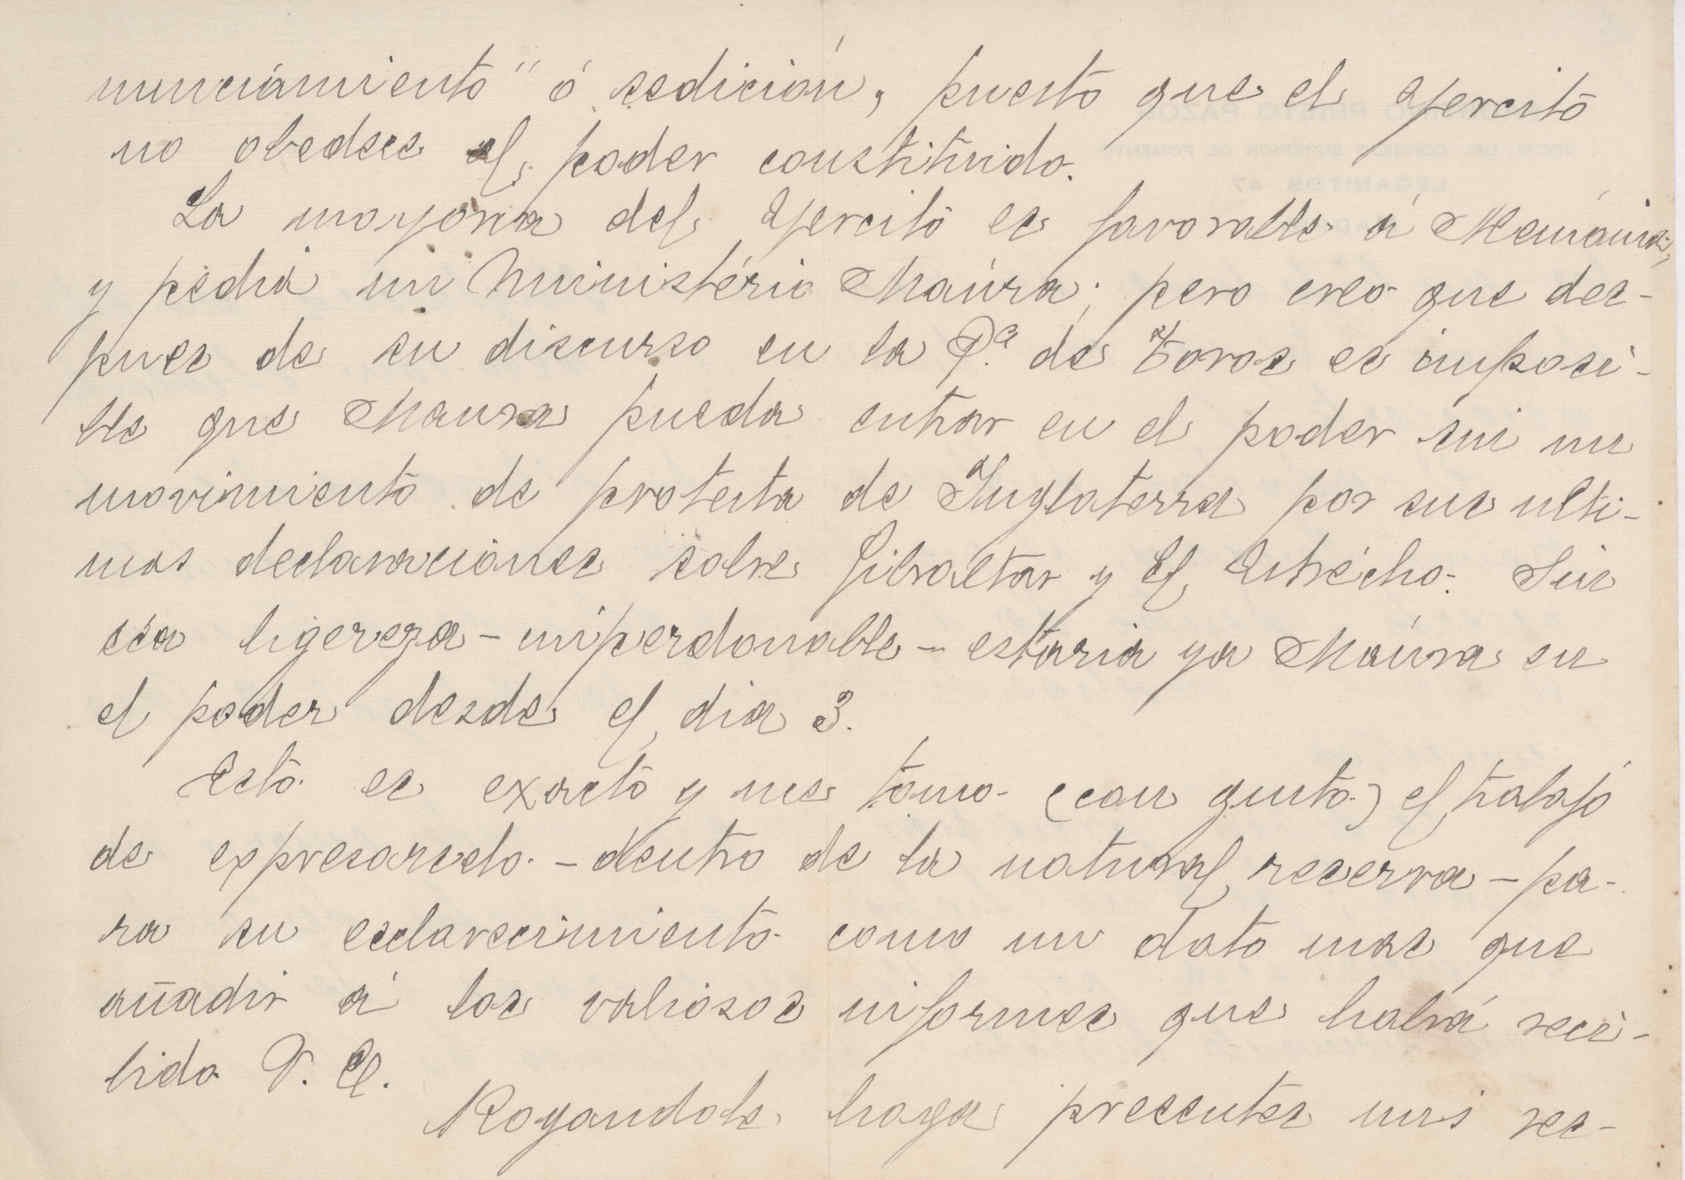 nunciamiento" ó sedición, puesto que el ejercitó
no obedece al poder constituido.
La mayoria del ejercitó es favorable á Alemánia,
y pedia un Ministério Maúra; pero creo que des-
pues de su discurso en la P.ª de Toros es imposi-
ble que Maura pueda entrar en el poder sin un
movimiento de protesta de Inglaterra por sus ulti-
mas declaraciones sobre Gibraltar y El Estrécho. Sin
esa ligereza - imperdonable - estaria ya Maúra en
el poder desde el dia 3.
Esto es exacto y me tomo (con gusto) el trabajó
de expresarselo - dentro de la natural reserva - pa-
ra su esclarecimiento como un dato mas que
añadir á los valiosos informes que habrá reci-
bido V. E.
Rogandole haga presentes mis res-